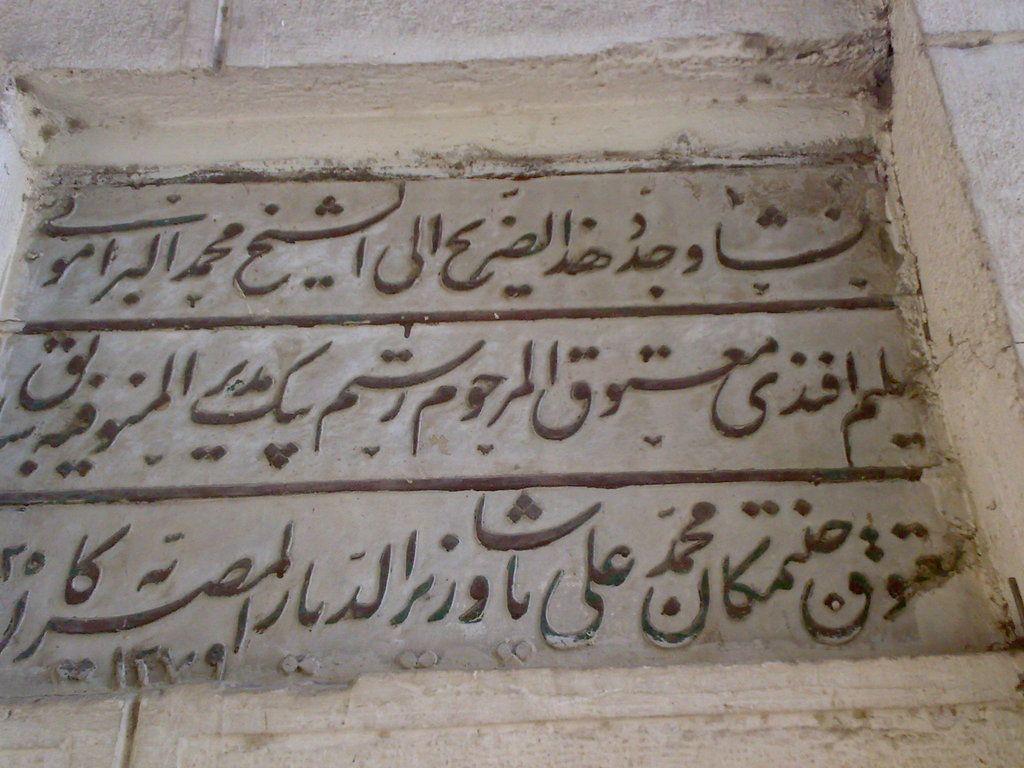 نشا وجدد هذا لضريح الى الشيخ محمد البراموني
سليم افندى معتوق المرحوم رستم بيك مدير المنوفيه سابق
معتوق جنتمكان محمد على باشا وزير الديار المصريه كان ١٢٧٩